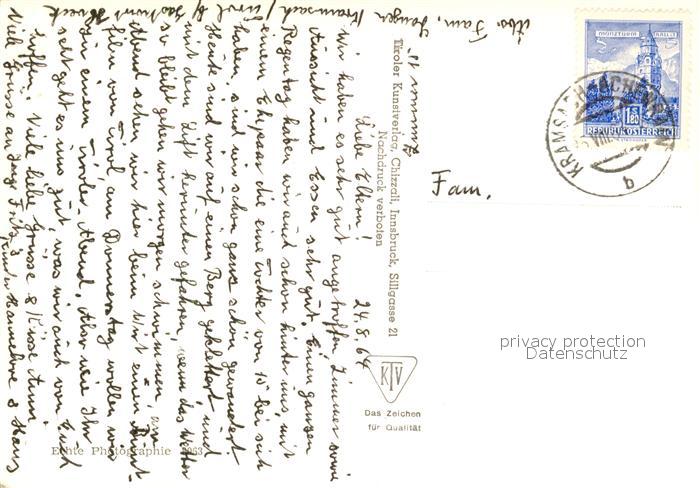 Abs. Fam. Zangerl
Kramsach / Tirol
Zimmer 12
24.8.64
Liebe Eltern!
Wir haben es sehr gut angetroffen, Zimmer sowie
Aussicht und Essen sehr gut. Einen ganzen
Regentag haben wir auch schon hinter uns, mit
einem Ehepaar die eine Tochter von 15 bei sich
haben, sind wir schon ganz schön gewandert
Heute sind wir auf einen Berg geklettert und
mit dem Lift herunter gefahren, wenn das Wetter
so bleibt gehen wir morgen schwimmen, am
Abend sehen wir hier beim Wirt einen
film von Tirol, am Donnerstag wollen wir
zu einem Tiroler-Abend. Also wie Ihr
seht geht es uns gut, was wir auch von Euch
hoffen. Viele liebe Grüsse & Küsse
Viele Grüsse an Fritz Hannelore & Hans
Tiroler Kunstverlag, Chizzali, Innsbruck, Sillgasse 21
Nachdruck verboten
KTV
Das Zeichen
für Qualität
Echte Photographie
Fam.
1.80
REPUBLIK ÖSTERREICH
KRAMSACH-ACHENRAIN
privacy protection
Datenschutz